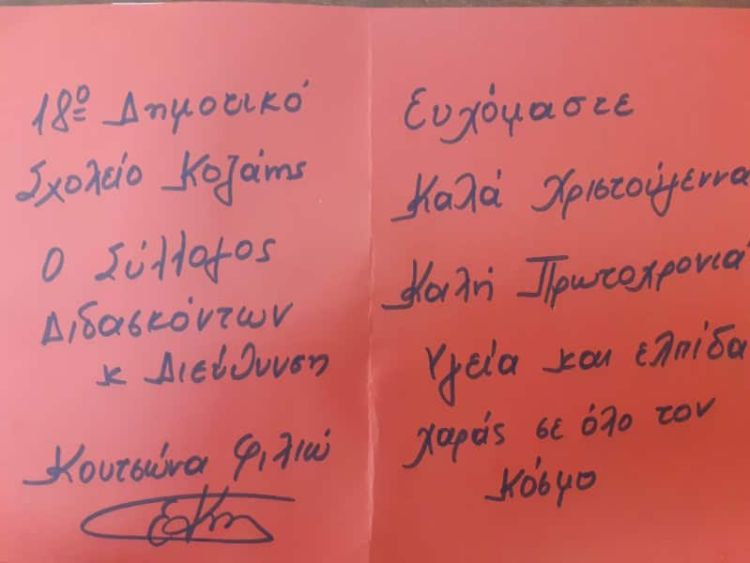 18ο Δημοτικό
Σχολείο Κοζάνης
Ο Σύλλογος
Διδασκόντων
κ Διεύθυνση
Κουτσιώνα Φιλιώ
Ευχόμαστε
Καλά Χριστούγεννα
Καλή Πρωτοχρονιά
Υγεία και ελπίδα
χαράς σε όλο τον
κόσμο